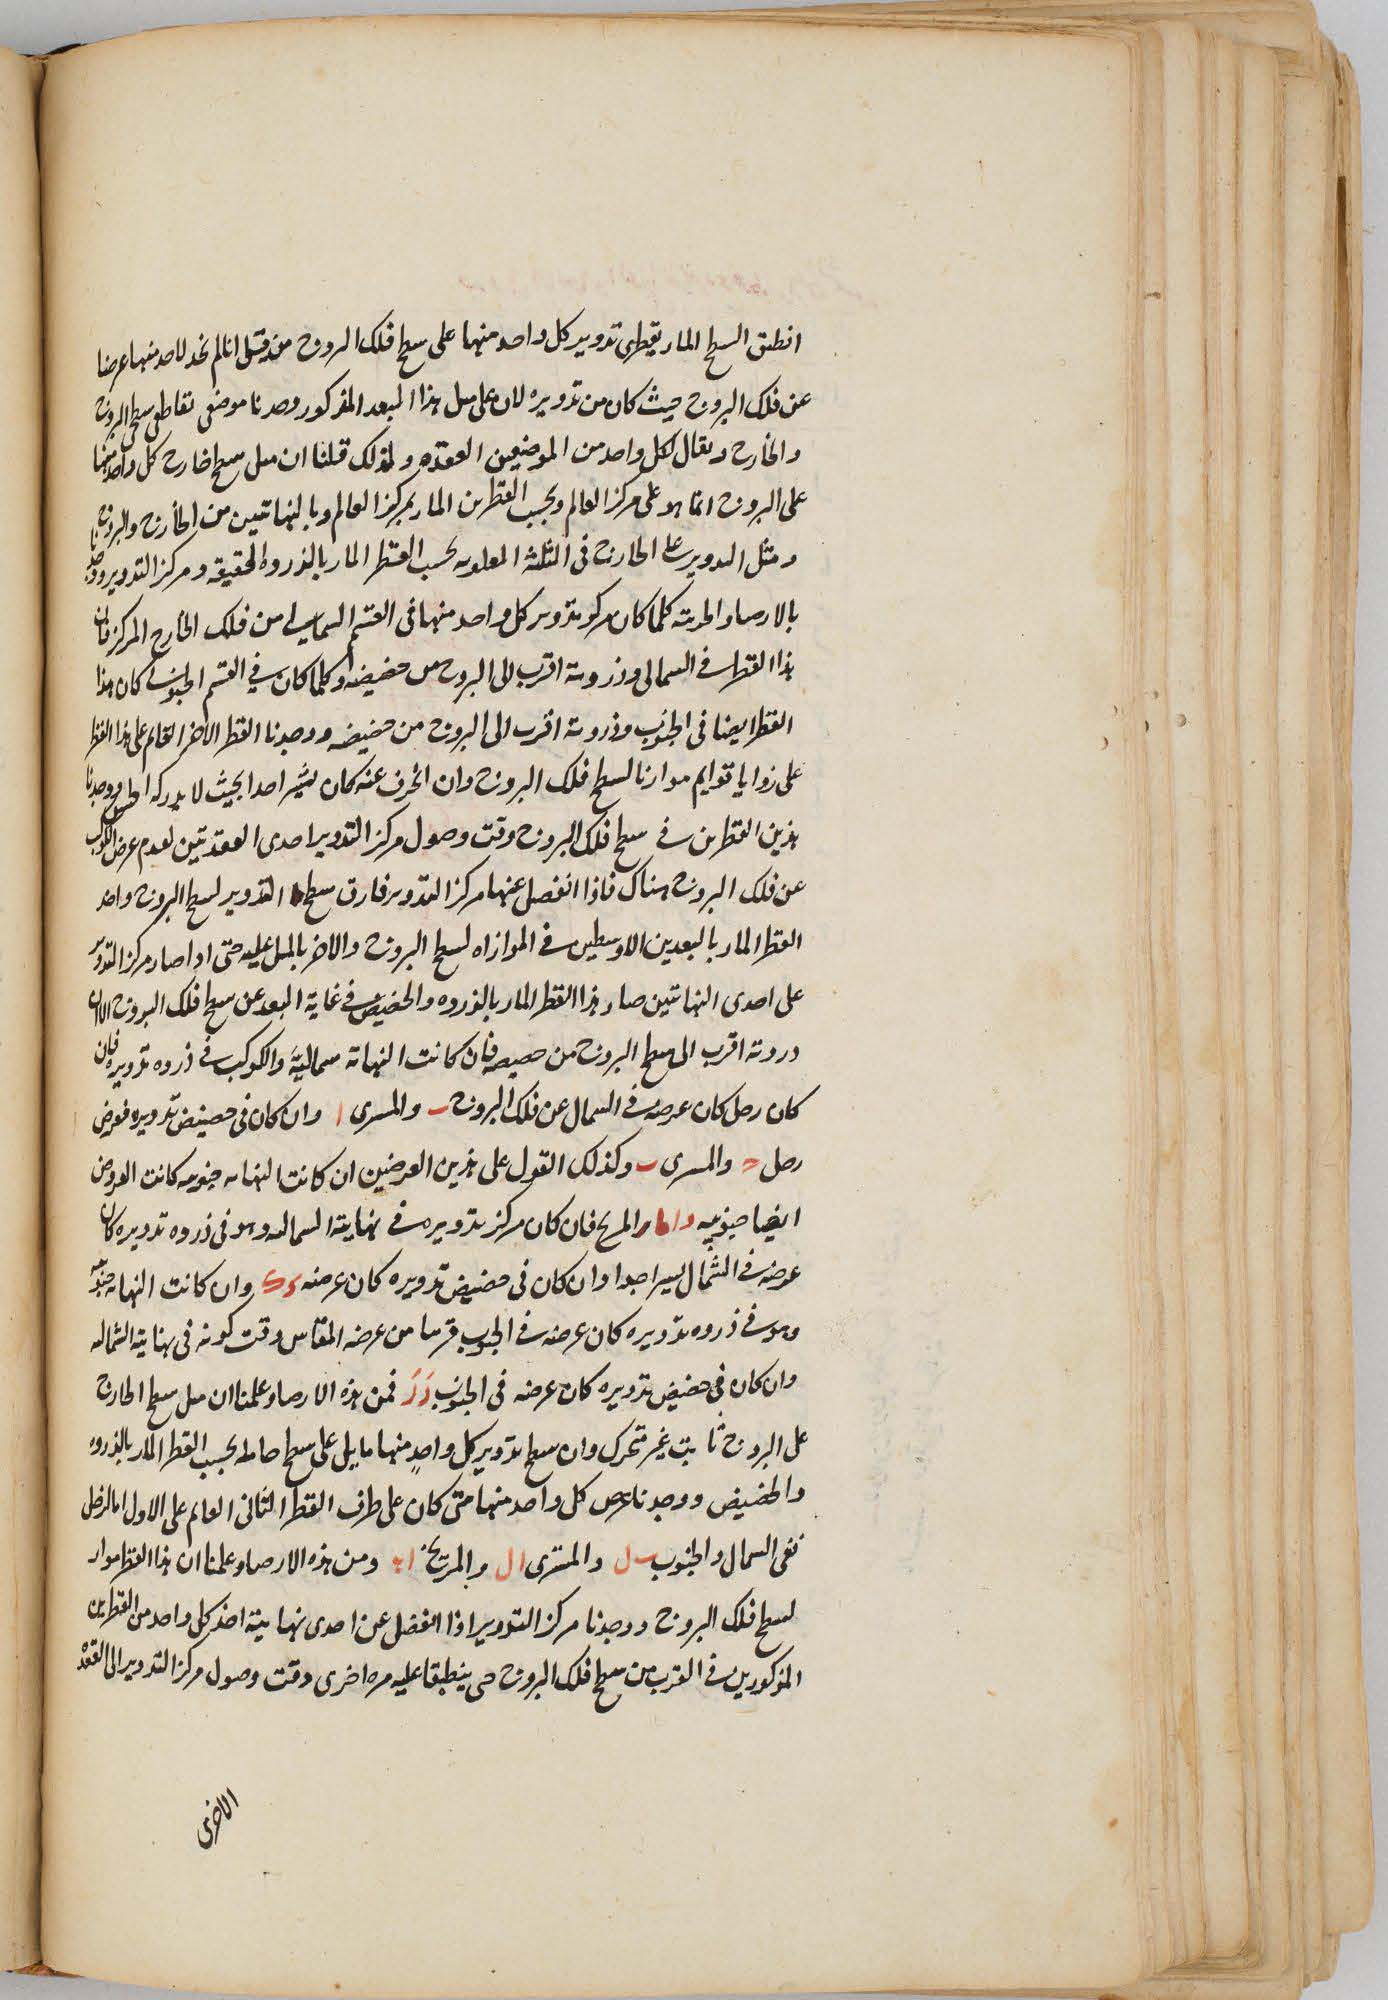 انطبق السطح المار بقطرى تدوير كل واحد منها على سطح فلك البروج من قبل انا لم نجد لاحد منها عرضا
عن فلك البروج حيث كان من تدويره لان على مثل هذا البعد المذكور وجدنا موضعى تقاطع سطحى البروج
والخارج ويقال لكل واحد من الموضعين العقده ولذلك قلنا ان ميل سطح خارج كل واحد منها
على البروج انما هو على مركز العالم وبحسب القطرين المار بمركز العالم وبالنهايتين من الخارج والبروج
وميل التدوير على الخارج فى الثلثة العلويه بحسب القطر المار بالذروه الحقيقه ومركز التدوير ووجدنا
بالارصاد كلما كان مركز تدوير كل واحد منها فى القسم الشمالى من فلك الخارج المركز فان
هذا القطر فى الشمالى وذروته اقرب الى البروج من حضيضه وكلما كان فى القسم الجنوبى كان هذا
القطر ايضا فى الجنوب وذروته اقرب الى البروج من حضيضه ووجدنا القطر الاخر القايم على هذا القطر
على زوايا قوايم موازنا لسطح فلك البروج وان انحرف عنه كان يسيرا جدا بحيث لا يدركه الحس ووجدنا
هذين القطرين فى سطح فلك البروج وقت وصول مركز التدوير احدى العقدتين لعدم عرض الكوكب
عن فلك البروج هناك فاذا انفصل عنها مركز التدوير فارق سطح التدوير لسطح البروج واخذ
القطر المار بالبعدين الاوسطين فى الموازاه لسطح البروج والاخر بالميل عليه حتى اذا صار مركز التدوير
على احدى النهايتين صار هذا القطر المار بالذروه والحضيض فى غاية البعد عن سطح فلك البروج الا ان
ذروته اقرب الى سطح البروج من حضيضه فان كانت النهاية شمالية والكوكب فى ذروه تدويره فان
كان زحل كان عرضه فى الشمال عن فلك البروج ب والمشترى ا وان كان فى حضيض تدويره فعرض
زحل ج والمشترى ب وكذلك القول على هذين العرضين ان كانت النهايه جنوبيه كانت العروض
ايضا جنوبيه واما المريخ فان كان مركز تدويره فى نهايته الشماليه وهو فى ذروه تدويره كان
عرضه فى الشمال يسيرا جدا وان كان فى حضيض تدويره كان عرضه د ك وان كانت النهايه جنوبيه
وهو فى ذروه تدويره كان عرضه فى الجنوب قريبا من عرضه المقاس وقت كونه فى نهايته الشماليه
وان كان فى حضيض تدويره كان عرضه فى الجنوب ز ز فمن هذه الارصاد علمنا ان ميل سطح الخارج
على البروج ثابت غير متحرك وان سطح تدوير كل واحد منها مايل على سطح حامله بحسب القطر المار بالذروه
والحضيض ووجدنا عرض كل واحد منها متى كان على طرف القطر الثانى القايم على الاول اما لزحل
ففى الشمال والجنوب ب ل والمشترى ا ل والمريخ ا ه ومن هذه الارصاد علمنا ان هذا القطر مواز
لسطح فلك البروج ووجدنا مركز التدوير اذا انفصل عن احدى نهايته اخذ كل واحد من القطرين
المذكورين فى القرب من سطح فلك البروج حتى ينطبقا عليه مره اخرى وقت وصول مركز التدوير الى العقده
الاخرى